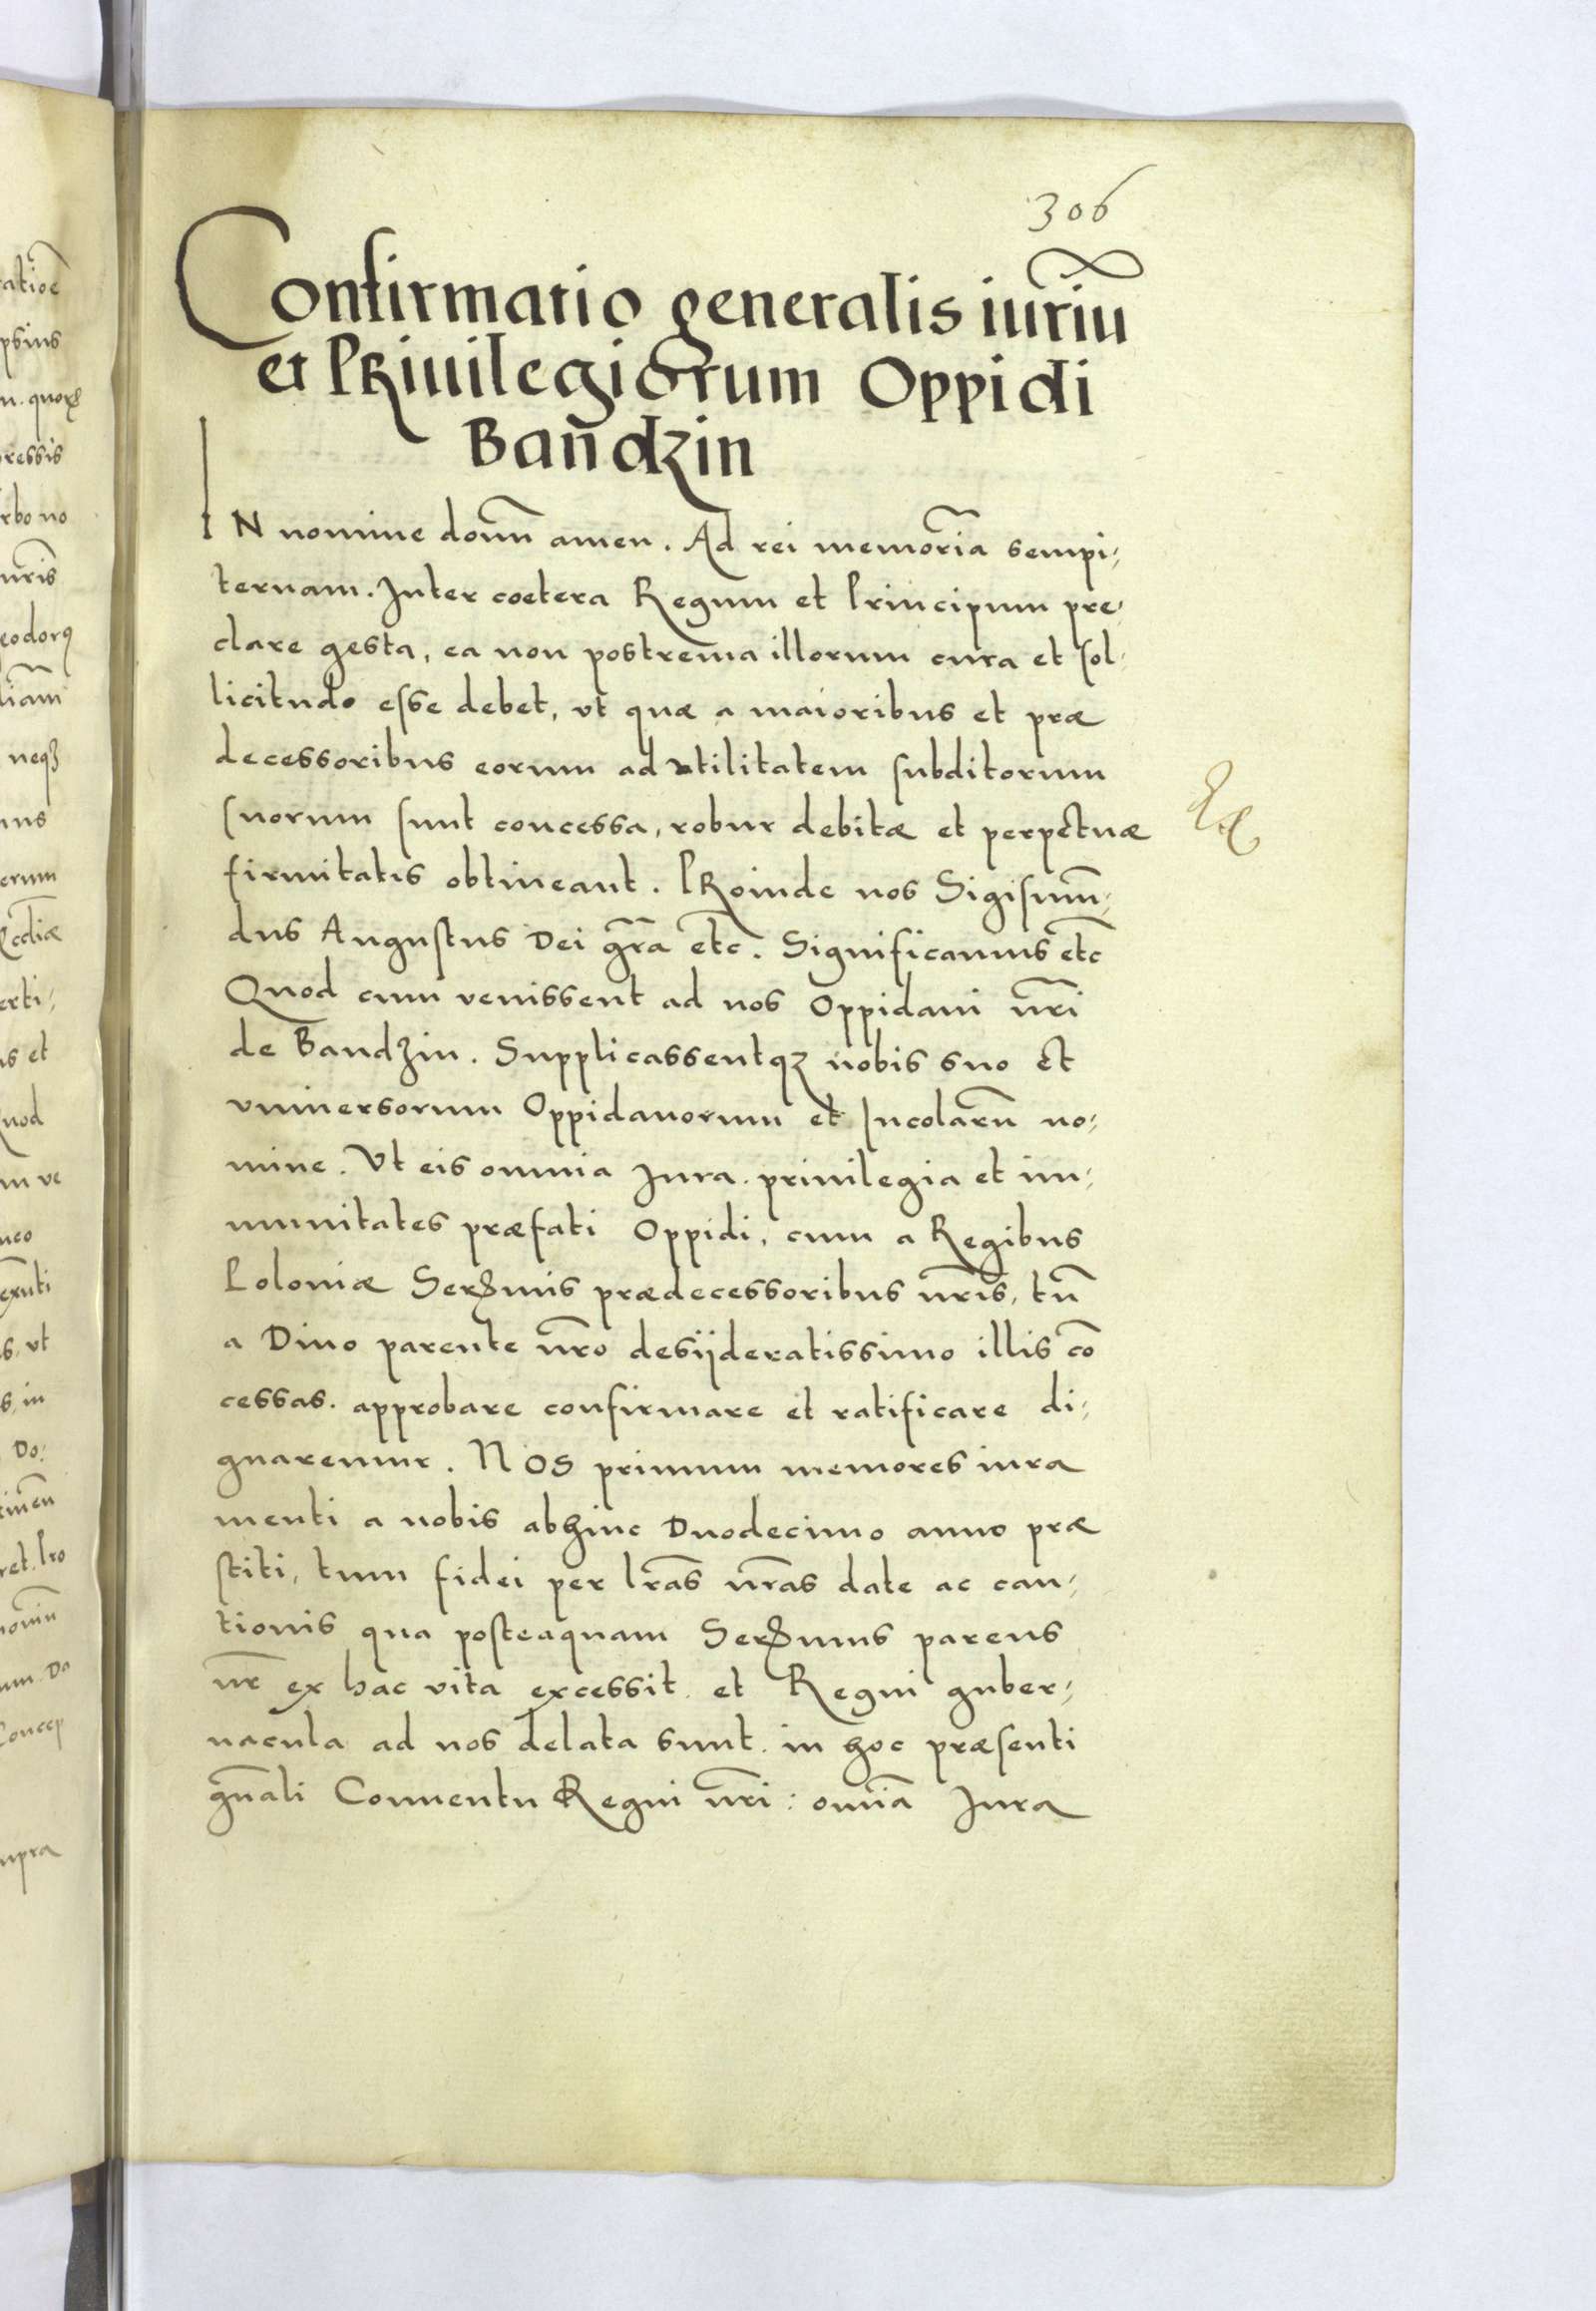 306
Confirmatio generalis iuriū
et PRiuilegiorum Oppidi
Bandzin
IN nomine domī amen. Ad rei memoriā sempi,
ternam. Inter coetera Regum et Principum pre,
clare gesta, ea non postrema illorum cura et sol,
licitudo esse debet, vt quæ a maioribus et præ
decessoribus eorum ad vtilitatem subditorum
suorum sunt concessa, robur debitæ et perpetuæ
firmitatis obtineant. PRoinde nos Sigismū,
dus Augustus Dei grā etc̄. Significamus etc̄
Quod cum venissent ad nos Oppidani nr̄i
de Bandzin. Supplicassentqꝫ nobis suo et
vniuersorum Oppidanorum et Incolarū no,
mine. Vt eis omnia Iura. priuilegia et im,
munitates præfati Oppidi, cum a Regibus
Poloniæ Serꝫmis prædecessoribus nr̄is, tū
a Diuo parente nr̄o desijderatissimo illis cō
cessas. approbare confirmare et ratificare di,
gnaremur. NOS primum memores iura
menti a nobis abhinc Duodecimo anno præ
stiti, tum fidei per lr̄as nr̄as date ac cau,
tionis qua posteaquam Serꝫmus parens
nr̄ ex hac vita excessit. et Regni guber,
nacula ad nos delata sunt. in hoc præsenti
gn̄ali Conuentu Regni nr̄i: omīa Iura